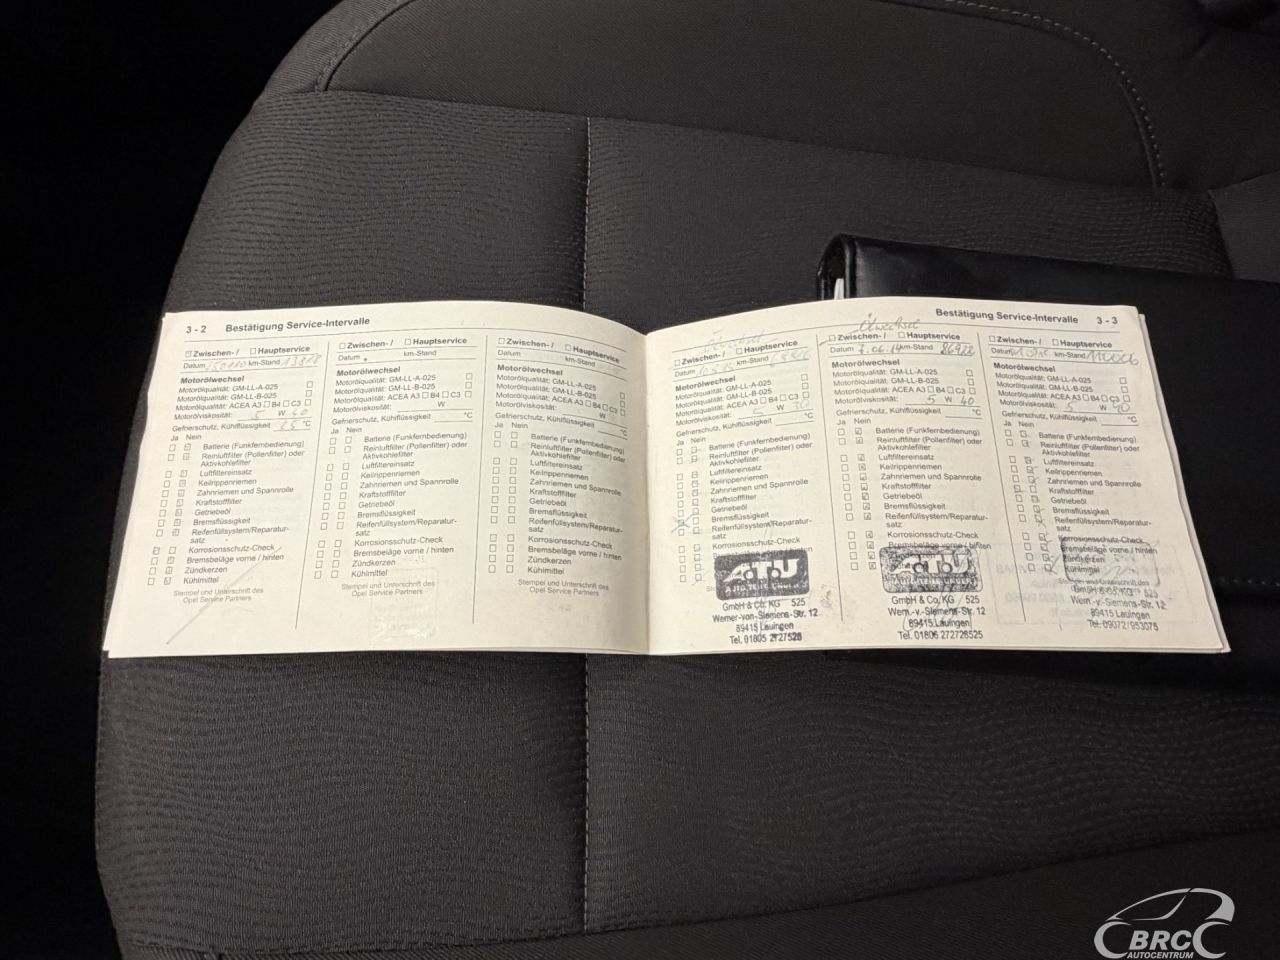 3 - 2 Bestätigung Service-Intervalle
Zwischen- / Hauptservice
Datum km-Stand
Motorölwechsel
Motorölqualität: GM-LL-A-025
Motorölqualität: GM-LL-B-025
Motorölqualität: ACEA A3 B4 C3
Motorölviskosität: 5 W 40
Gefrierschutz, Kühlflüssigkeit 25 °C
Ja Nein
Batterie (Funkfernbedienung)
Reinluftfilter (Pollenfilter) oder
Aktivkohlefilter
Luftfiltereinsatz
Keilrippenriemen
Zahnriemen und Spannrolle
Kraftstofffilter
Getriebeöl
Bremsflüssigkeit
Reifenfüllsystem/Reparatur-
satz
Korrosionsschutz-Check
Bremsbeläge vorne / hinten
Zündkerzen
Kühlmittel
Stempel und Unterschrift des
Opel Service Partners
Zwischen- / Hauptservice
Datum km-Stand
Motorölwechsel
Motorölqualität: GM-LL-A-025
Motorölqualität: GM-LL-B-025
Motorölqualität: ACEA A3 B4 C3
Motorölviskosität: W
Gefrierschutz, Kühlflüssigkeit °C
Ja Nein
Batterie (Funkfernbedienung)
Reinluftfilter (Pollenfilter) oder
Aktivkohlefilter
Luftfiltereinsatz
Keilrippenriemen
Zahnriemen und Spannrolle
Kraftstofffilter
Getriebeöl
Bremsflüssigkeit
Reifenfüllsystem/Reparatur-
satz
Korrosionsschutz-Check
Bremsbeläge vorne / hinten
Zündkerzen
Kühlmittel
Stempel und Unterschrift des
Opel Service Partners
Zwischen- / Hauptservice
Datum km-Stand
Motorölwechsel
Motorölqualität: GM-LL-A-025
Motorölqualität: GM-LL-B-025
Motorölqualität: ACEA A3 B4 C3
Motorölviskosität: W
Gefrierschutz, Kühlflüssigkeit °C
Ja Nein
Batterie (Funkfernbedienung)
Reinluftfilter (Pollenfilter) oder
Aktivkohlefilter
Luftfiltereinsatz
Keilrippenriemen
Zahnriemen und Spannrolle
Kraftstofffilter
Getriebeöl
Bremsflüssigkeit
Reifenfüllsystem/Reparatur-
satz
Korrosionsschutz-Check
Bremsbeläge vorne / hinten
Zündkerzen
Kühlmittel
Stempel und Unterschrift des
Opel Service Partners
Bestätigung Service-Intervalle 3 - 3
Zwischen- / Hauptservice
Datum km-Stand
Motorölwechsel
Motorölqualität: GM-LL-A-025
Motorölqualität: GM-LL-B-025
Motorölqualität: ACEA A3 B4 C3
Motorölviskosität: 5 W 30
Gefrierschutz, Kühlflüssigkeit °C
Ja Nein
Batterie (Funkfernbedienung)
Reinluftfilter (Pollenfilter) oder
Aktivkohlefilter
Luftfiltereinsatz
Keilrippenriemen
Zahnriemen und Spannrolle
Kraftstofffilter
Getriebeöl
Bremsflüssigkeit
Reifenfüllsystem/Reparatur-
satz
Korrosionsschutz-Check
Bremsbeläge vorne / hinten
A.T.U
GmbH & Co. KG 525
Werner-von-Siemens-Str. 12
89415 Lauingen
Tel. 01805 2727525
Ölwechsel
Zwischen- / Hauptservice
Datum 7.06.14 km-Stand 86922
Motorölwechsel
Motorölqualität: GM-LL-A-025
Motorölqualität: GM-LL-B-025
Motorölqualität: ACEA A3 B4 C3
Motorölviskosität: 5 W 40
Gefrierschutz, Kühlflüssigkeit °C
Ja Nein
Batterie (Funkfernbedienung)
Reinluftfilter (Pollenfilter) oder
Aktivkohlefilter
Luftfiltereinsatz
Keilrippenriemen
Zahnriemen und Spannrolle
Kraftstofffilter
Getriebeöl
Bremsflüssigkeit
Reifenfüllsystem/Reparatur-
satz
Korrosionsschutz-Check
Bremsbeläge vorne / hinten
A.T.U
GmbH & Co. KG 525
Wern.-v.-Siemens-Str. 12
89415 Lauingen
Tel. 01806 272728525
Zwischen- / Hauptservice
Datum km-Stand
Motorölwechsel
Motorölqualität: GM-LL-A-025
Motorölqualität: GM-LL-B-025
Motorölqualität: ACEA A3 B4 C3
Motorölviskosität: 5 W 40
Gefrierschutz, Kühlflüssigkeit °C
Ja Nein
Batterie (Funkfernbedienung)
Reinluftfilter (Pollenfilter) oder
Aktivkohlefilter
Luftfiltereinsatz
Keilrippenriemen
Zahnriemen und Spannrolle
Kraftstofffilter
Getriebeöl
Bremsflüssigkeit
Reifenfüllsystem/Reparatur-
satz
Korrosionsschutz-Check
Bremsbeläge vorne / hinten
Zündkerzen
Kühlmittel
Stempel und Unterschrift des
GmbH & Co. KG 525
Wern.-v.-Siemens-Str. 12
89415 Lauingen
Tel.: 09072/953075
BRC
AUTOCENTRUM